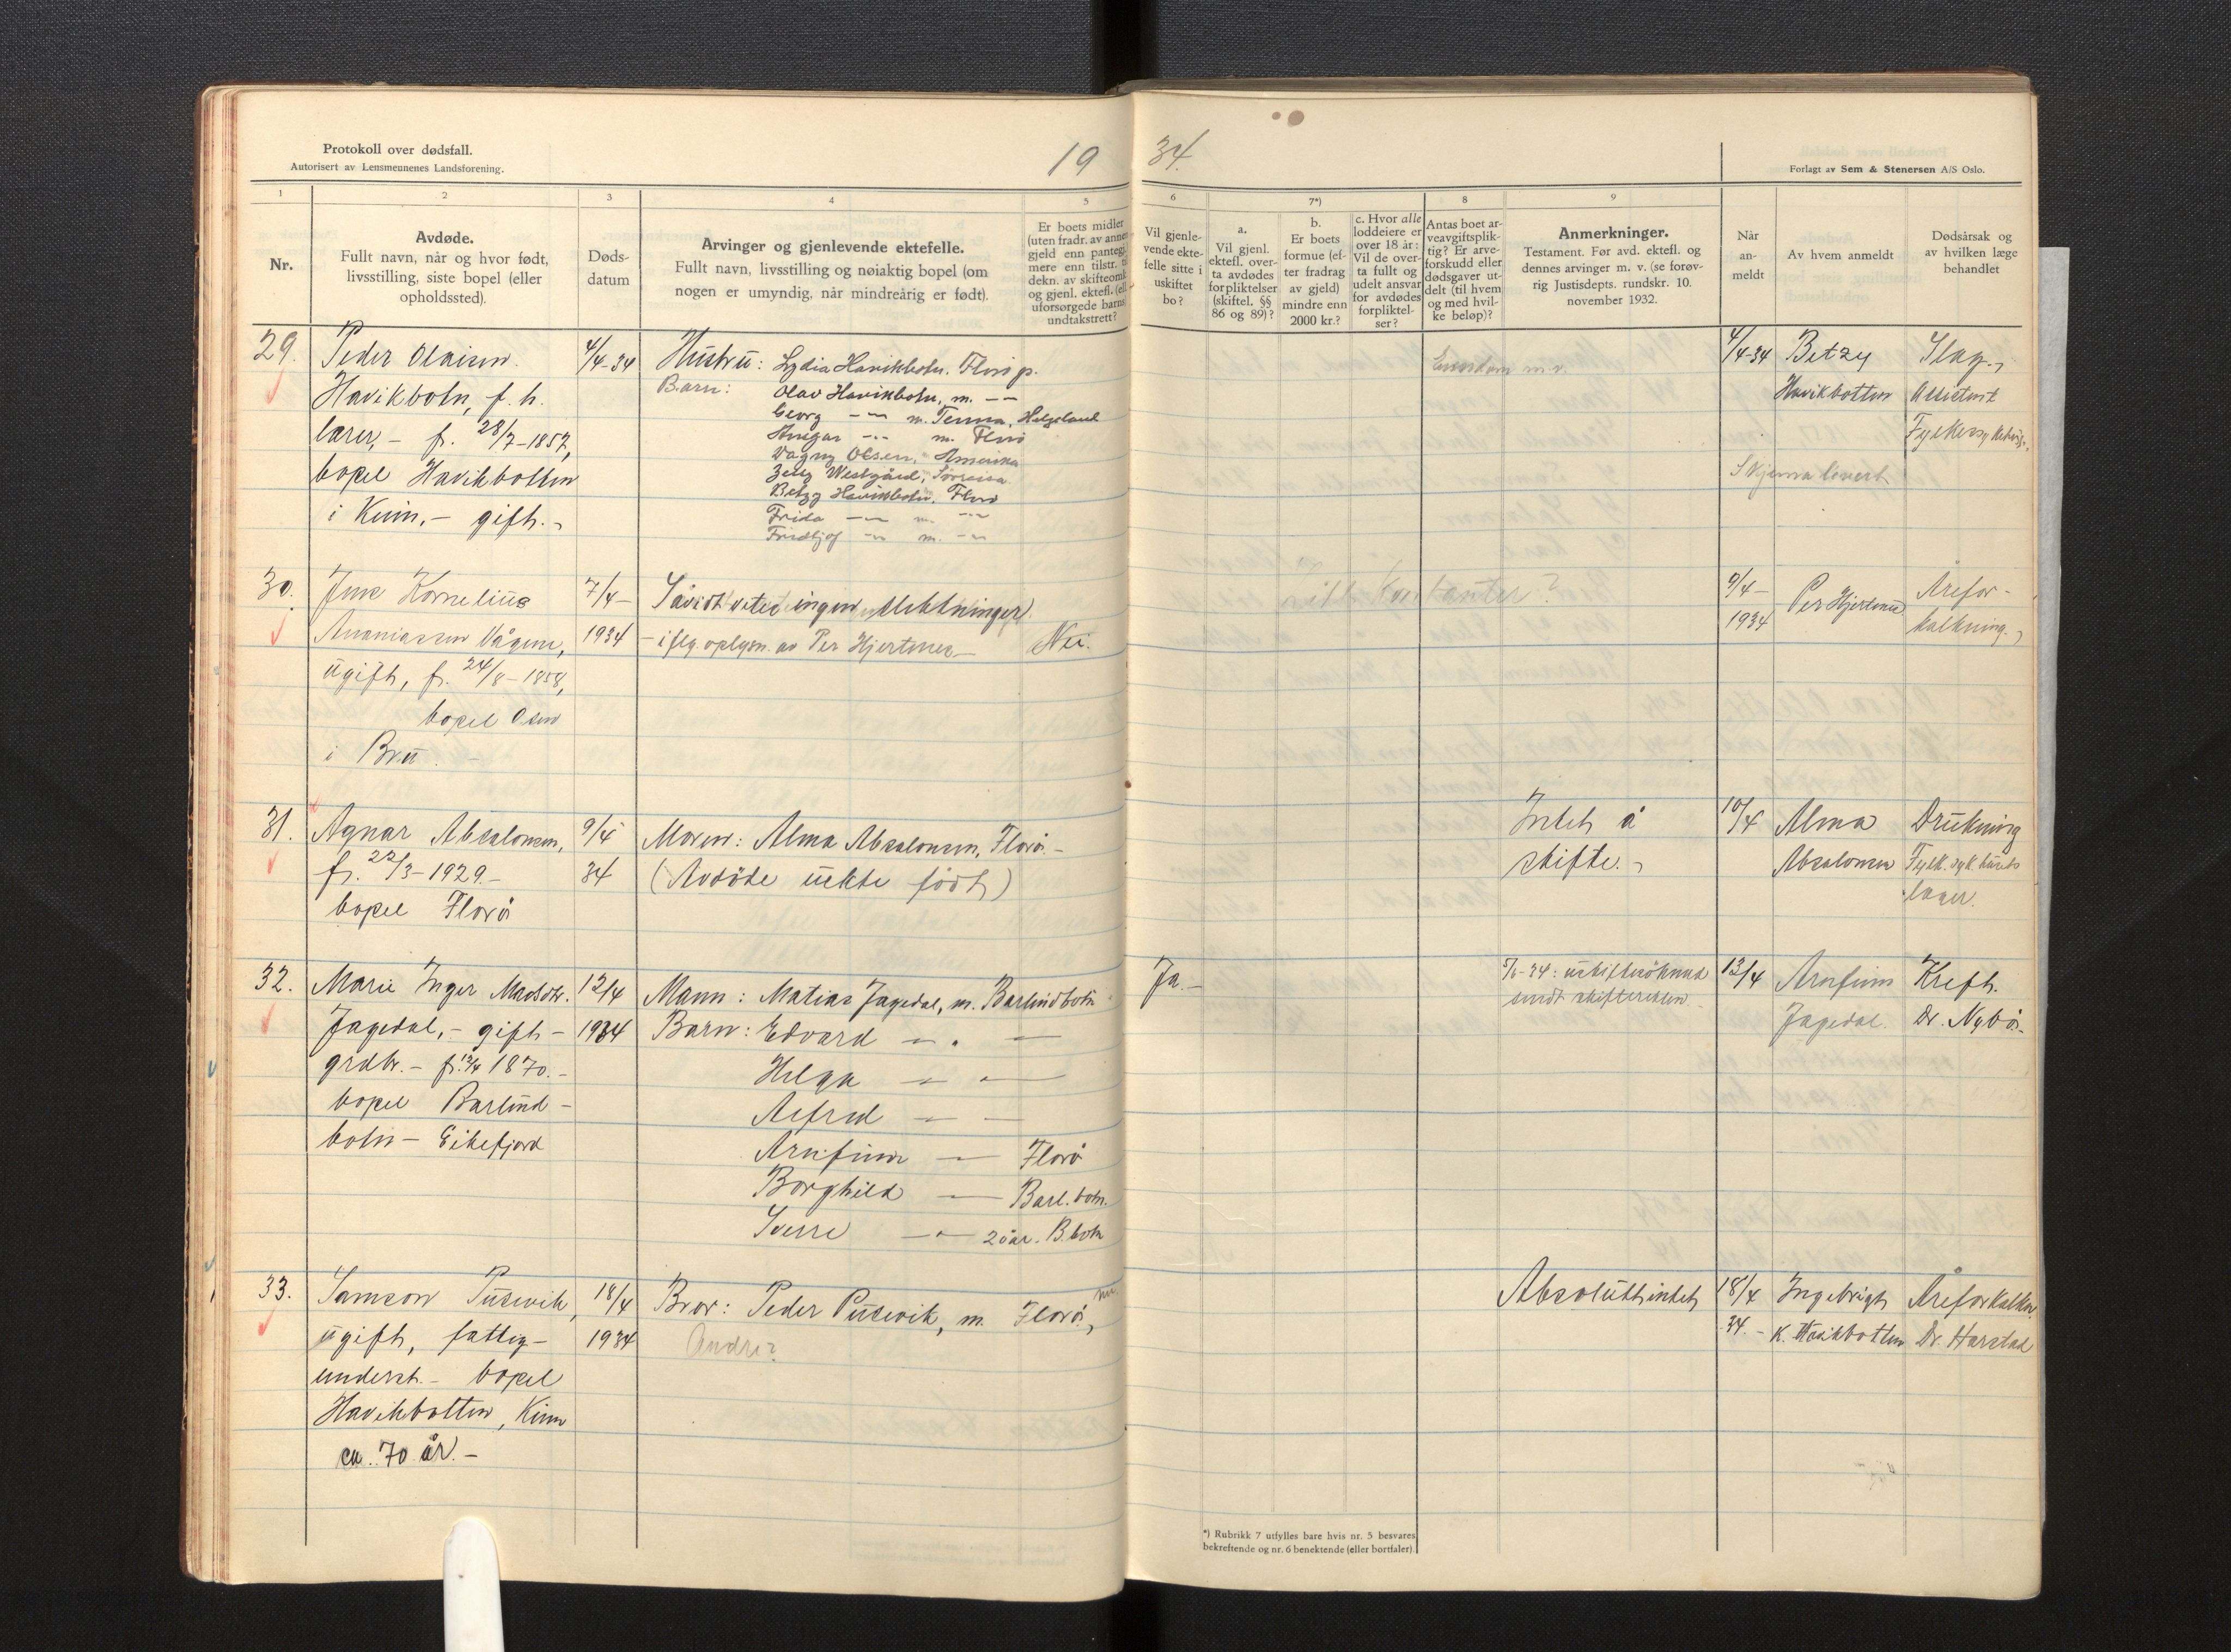 Protokoll over dødsfall.
Autorisert av Lensmennenes Landsforening.
19
34.
Forlagt av Sem & Stenersen A/S Oslo.
1
2
3
4
5
6
7*)
8
9
Nr.
Avdøde.
Fullt navn, når og hvor født,
livsstilling, siste bopel (eller
opholdssted).
Døds-
datum
Arvinger og gjenlevende ektefelle.
Fullt navn, livsstilling og nøiaktig bopel (om
nogen er umyndig, når mindreårig er født).
Er boets midler
(uten fradr. av annen
gjeld enn pantegj.
mere enn tilstr. t
dekn. av skifteomk
og gjenl. ektefl. (ell
uforsørgede barns
undtakstrett?
Vil gjenle-
vende ekte-
felle sitte i
uskiftet
bo?
a.
Vil gjenl.
ektefl. over-
ta avdødes
forpliktelser
(skiftel. §§
86 og 89)?
b.
Er boets
formue (ef-
ter fradrag
av gjeld)
mindre enn
2000 kr.?
c. Hvor alle
loddeiere er
over 18 år:
Vil de over-
ta fullt og
udelt ansvar
for avdødes
forpliktel-
ser?
Antas boet ar-
veavgiftsplik-
tig? Er arve-
forskudd eller
dødsgaver ut-
delt (til hvem
og med hvil-
ke beløp)?
Anmerkninger.
Testament. Før avd. ektefl. og
dennes arvinger m. v. (se forøv-
rig Justisdepts. rundskr. 10.
november 1932.
Når
an-
meldt
Av hvem anmeldt
Dødsårsak og
av hvilken læge
behandlet
29.
Peder Olaisen
Havikbotn, f. h.
lærer, - f. 28/7-1857,
bopel Havikbotten
i Kinn, - gift. -
4/4-34
Hustru: Lydia Havikbotn. Florø p.
Barn: Olav Havikbotn, m. - -
Georg - - m. Tenna, Helgeland
Ansgar - - m. Florø
Dagny Olsen, Amerika
Westgård, Sørreisa
Betzy Havikbotn, Florø
Frida - - m. - -
Fridtjof - - m. - -
Eiendom m.v.
4/4-34
Betzy
Havikbotten
Skjema levert
Slag -,
Assistent
30.
Jens Kornelius
Ananiassen Vågene,
ugift, f. 24/8-1858,
bopel Osen
i Bru. -
7/4-
1934
Såvidt vites ingen slektninger
- iflg. oplysn. av Per Hjertenes -
Nei.
9/4-
1934
Per Hjertenes
Årefor-
kalkning. -
31.
Agnar Absalonsen,
f. 22/3-1929. -
bopel Florø
9/4
34
Moren: Alma Absalonsen, Florø. -
(Avdøde uekte født)
Intet å
skifte. -
10/4
Alma
Absalonsen
Drukning
Fylk. syk. husets
læger.
32.
Marie Inger Madsdtr.
Jagedal, - gift -
grdbr. - f. 12/4 1870. -
bopel Barlind-
botn - Eikefjord
12/4
1934
Mann: Matias Jagedal, m. Barlindbotn
Barn: Edvard - " -
Helga - " -
Alfred - -
Arnfinn - Florø
Borghild - Barl. botn.
Sverre - " - 20 år. B. botn
Ja. -
5/6-34: uskiftesøknad
sendt skifteretten -
13/4
Arnfinn
Jagedal.
Kreft.
Dr. Nybø. -
33.
Samson Pusevik,
ugift, fattig-
underst. - bopel
Havikbotten, Kinn
ca. 70 år. -
18/4
1934
Bror: Peder Pusevik, m. Florø,
Andre?
Absolutt intet
18/4
34. -
Ingebrigt
K. Havikbotten
Åreforkalkn.
Dr. Harstad
*) Rubrikk 7 utfylles bare hvis nr. 5 besvares
bekreftende og nr. 6 benektende (eller bortfaler).